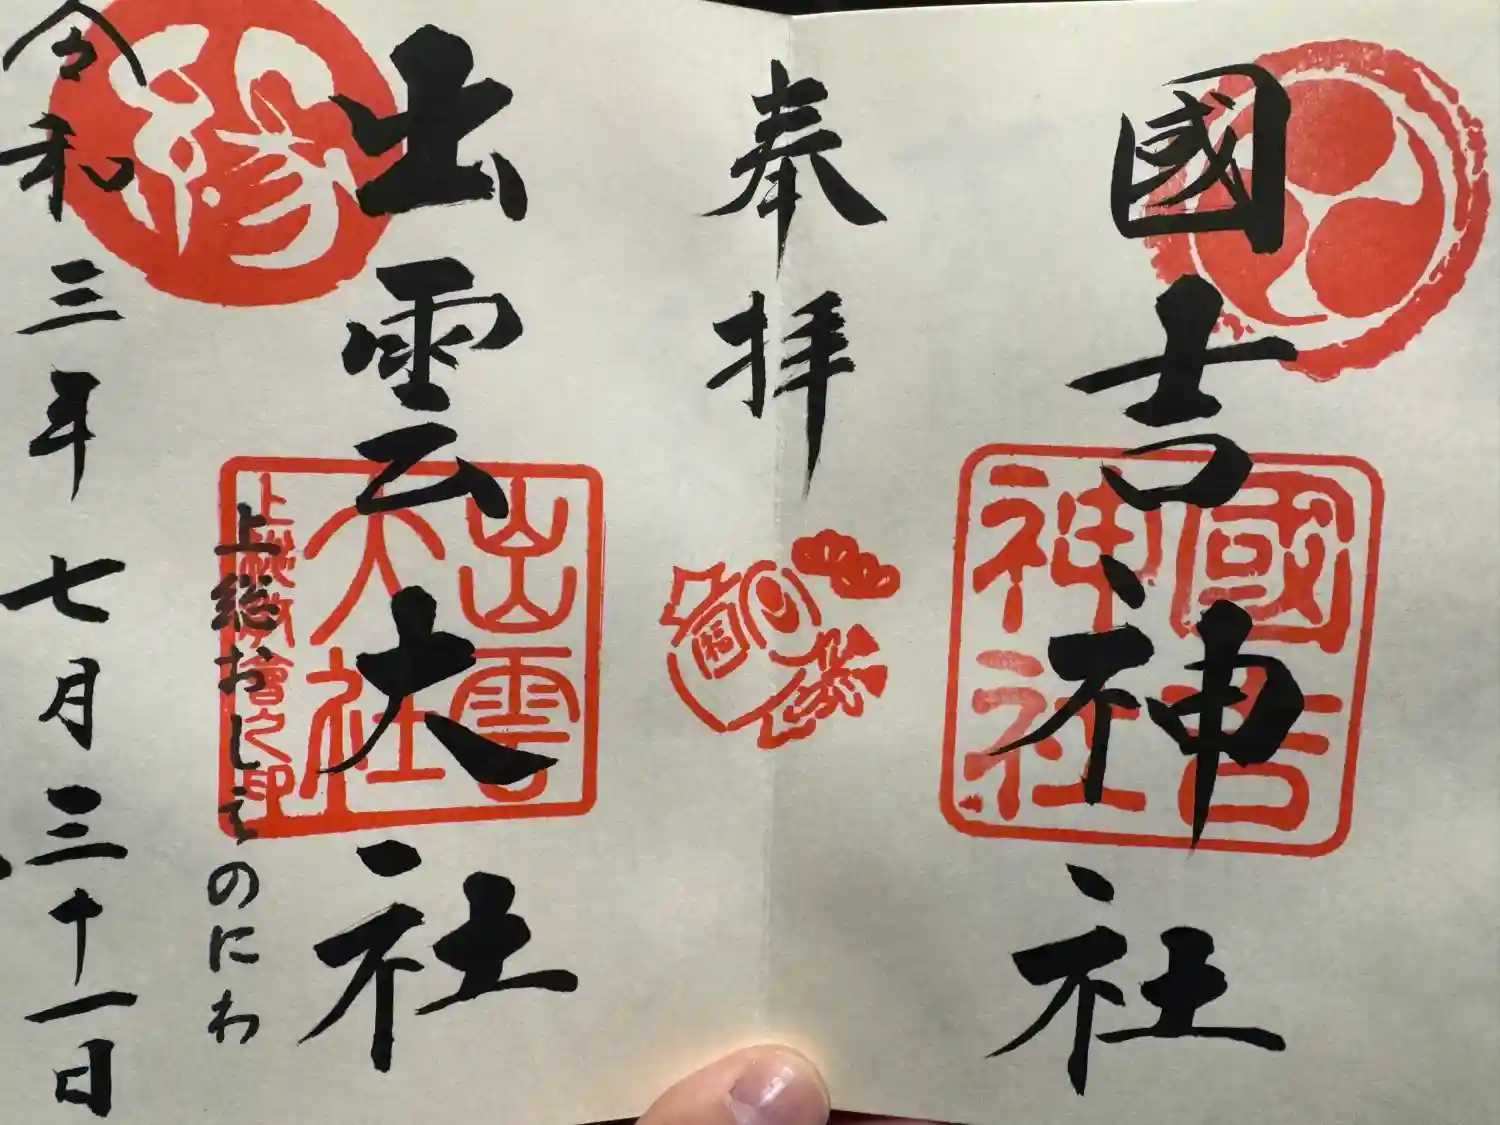 國吉神社
國吉神社
奉拝
福
出雲大社
出雲大社
上総教會之印
上総おしゑのにわ
縁
令和三年七月三十一日